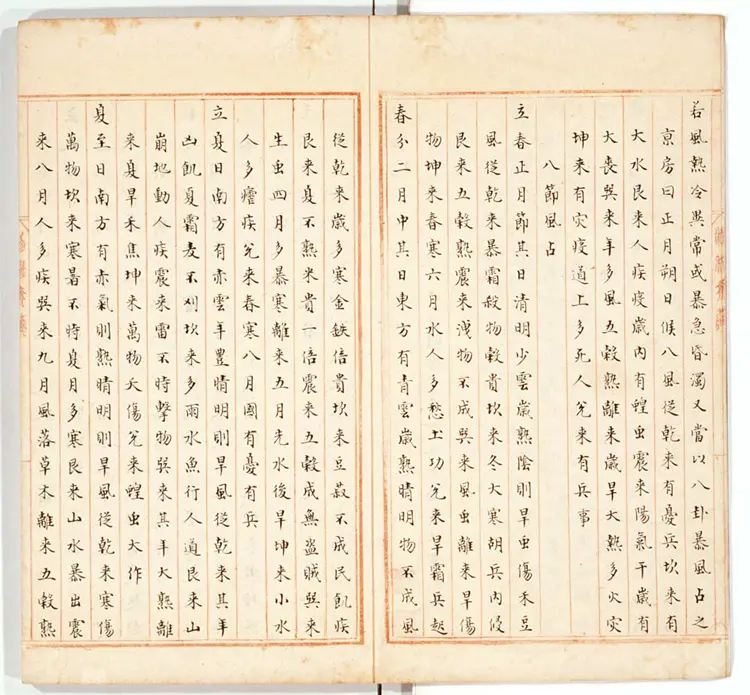 若風熱冷異常或暴急昏濁又當以八卦暴風占之
京房曰正月朔日候八風從乾來有憂兵坎來有
大水艮來人疾疫歲內有蝗虫震來陽氣干歲有
大喪巽來年多風五穀熟離來歲旱大熱多火灾
坤來有灾疫道上多死人兌來有兵事
八節風占
立春正月節其日清明少雲歲熟陰則旱虫傷禾豆
風從乾來暴霜殺物穀貴坎來冬大寒胡兵內侵
艮來五穀熟震來洩物不成巽來風虫離來旱傷
物坤來春寒六月水人多愁土功兌來旱霜兵起
春分二月中其日東方有青雲歲熟晴明物不成風
從乾來歲多寒金鉄倍貴坎來豆菽不成民飢疾
艮來夏不熟米貴一倍震來五穀成無盜賊巽來
生虫四月多暴寒離來五月先水後旱坤來小水
人多瘧疾兌來春寒八月國有憂有兵
立夏日南方有赤雲年豊晴明則旱風從乾來其年
凶飢夏霜麦不刈坎來多雨水魚行人道艮來山
崩地動人疾震來雷不時擊物巽來其年大熟離
來夏旱禾焦坤來萬物夭傷兌來蝗虫大作
夏至日南方有赤氣則熟晴明則旱風從乾來寒傷
萬物坎來寒暑不時夏月多寒艮來山水暴出震
來八月人多疾巽來九月風落草木離來五穀熟